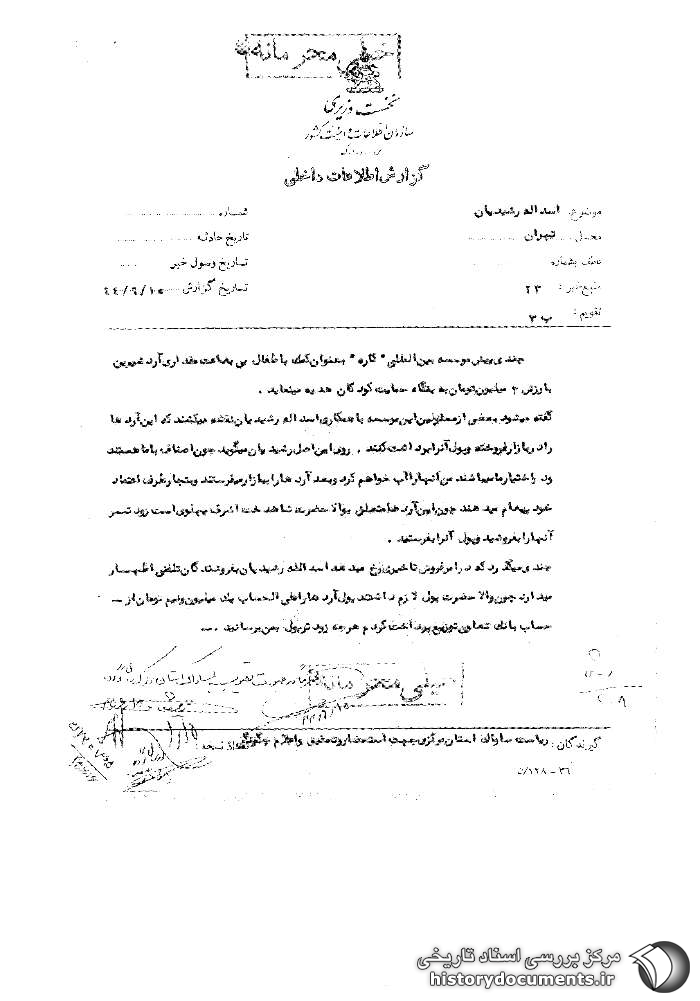 خیلی محرمانه
نخست وزیری
سازمان اطلاعات و امنیت کشور
س.ا.و.ا.ک
گزارش اطلاعات داخلی
موضوع: اسداله رشیدیان
شماره
محل: تهران
تاریخ حادثه
عطف بشماره
تاریخ وصول خبر
منبع خبر: ۲۳
تاریخ گزارش ۴۴/۹/۱۰
تقویم: ب ۳
چندی پیش موسسه بین‌المللی "کاره" بعنوان کمک باطفال بی بضاعت مقداری آرد تعیین
بارزش ۲ میلیون تومان به بنگاه حمایت کودکان هدیه مینماید .
گفته میشود بعضی از مسئولین این موسسه با همکاری اسداله رشیدیان نقشه میکشند که این آردها
را در بازار فروخته و پول آنرا برداشت کنند . روی این اصل رشیدیان میگوید چون اصناف باما هستند
و در اختیار ما میباشند من آنها را آب خواهم کرد و بعد آردها را ببازار میفرستند و بتجار طرف اعتماد
خود پیغام میدهند چون این آردها متعلق بوالاحضرت شاهدخت اشرف پهلوی است زودتر
آنها را بفروشید و پول آنرا بفرستید .
چندی میگذرد که در امر فروش تاخیری رخ میدهد اسداله رشیدیان بفروشندگان تلفنی اظهار
میدارد چون والاحضرت پول لازم داشتند پول آردها را علی الحساب یک میلیون و نیم تومان از –
حساب بانک تعاون توزیع پرداخت کردم هرچه زودتر پول بمن برسانید . –
خیلی محرمانه
گیرندگان: ریاست ساواک استان مرکزی جهت استحضار و تحقیق و اعلام چگونگی
تعداد نسخه
۳۶ – ۱۲۸/ن
مرکز بررسی اسناد تاریخی
historydocuments.ir